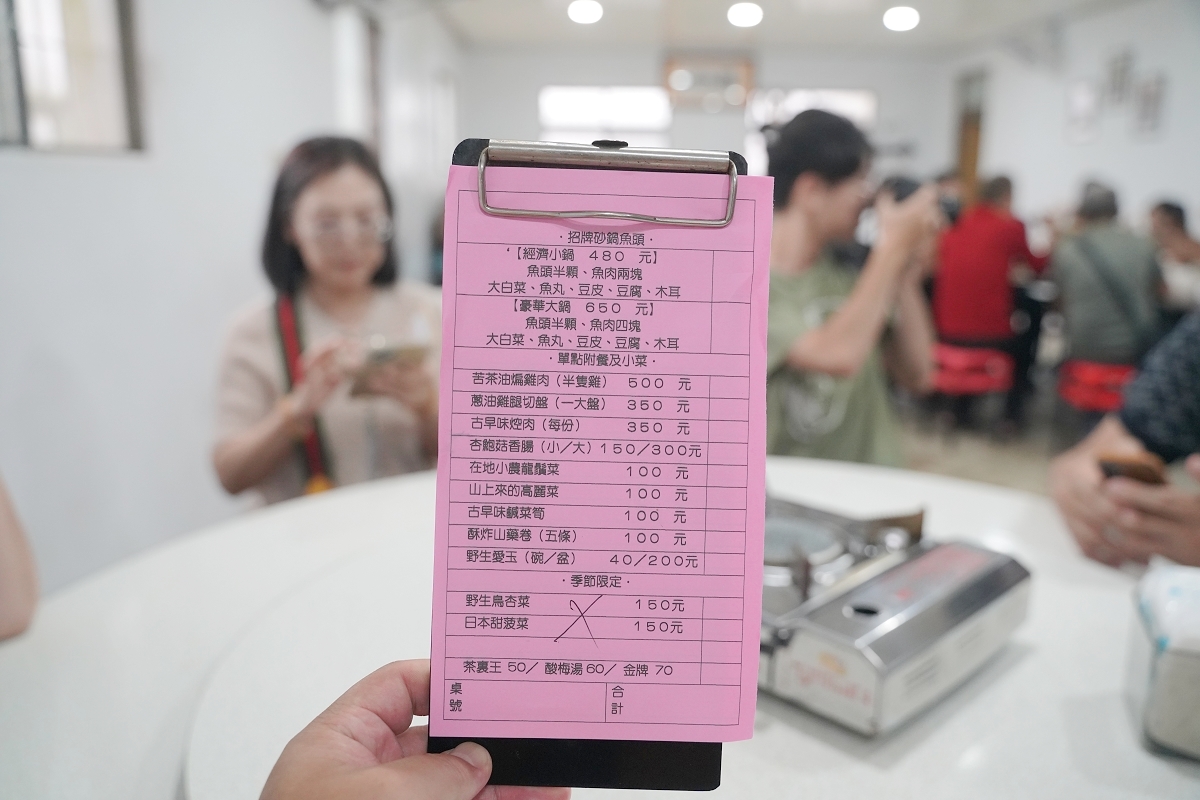 ·招牌砂鍋魚頭·
【經濟小鍋 480 元】
魚頭半顆、魚肉兩塊
大白菜、魚丸、豆皮、豆腐、木耳
【豪華大鍋 650 元】
魚頭半顆、魚肉四塊
大白菜、魚丸、豆皮、豆腐、木耳
·單點附餐及小菜·
苦茶油煸雞肉（半隻雞） 500 元
蔥油雞腿切盤（一大盤） 350 元
古早味焢肉（每份） 350 元
杏鮑菇香腸（小／大）150/300元
在地小農龍鬚菜 100 元
山上來的高麗菜 100 元
古早味鹹菜筍 100 元
酥炸山藥卷（五條） 100 元
野生愛玉（碗／盆） 40/200元
·季節限定·
野生鳥杏菜 150元
日本甜菠菜 150元
茶裏王 50／ 酸梅湯 60／ 金牌 70
桌號 合計